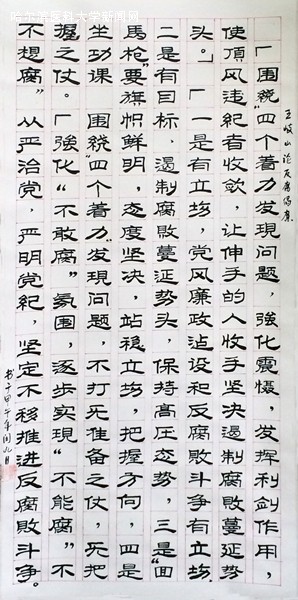 哈尔滨医科大学新闻网
王岐山论反腐倡廉
「围绕“四个着力”发现问题，強化震慑，发挥利剑作用，
使頂风违纪者收敛，让伸手的人收手坚决遏制腐败蔓延势
头。「一是有立场，党风廉政设和反腐败斗争有立场.
二是有目标，遏制腐败蔓延势头，保持高压态势，三是“面
馬枪”要旗帜鲜明，态度坚决，站稳立场，把握方向，四是
坐功课 围绕“四个着力”发现问题，不打无准备之仗，无把
握之仗。「強化“不敢腐”氛围，逐步实現“不能腐”不
不想腐” 从严治党，严明党纪，坚定不移推进反腐败斗争。
书于甲午年闰九月